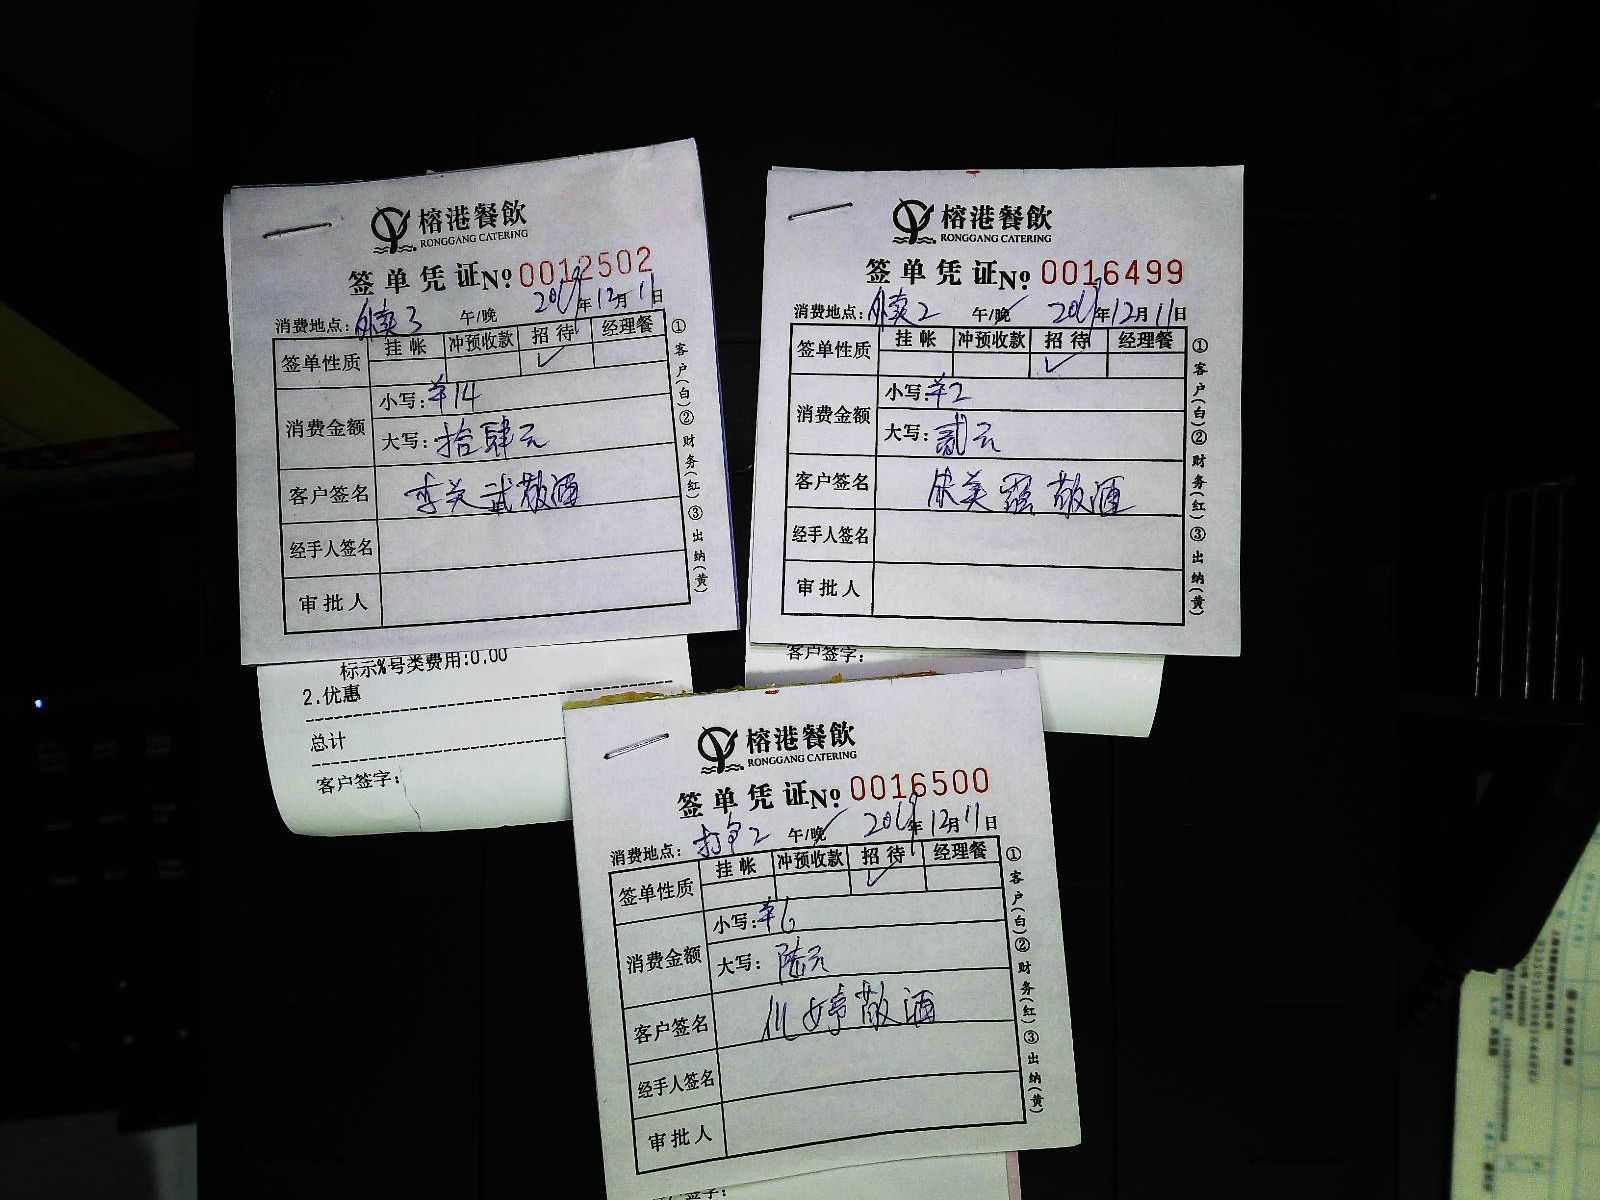 榕港餐飲
RONGGANG CATERING
签单凭证№ 0012502
消费地点：外卖3 午/晚 2019年12月11日
签单性质 挂帐 冲预收款 招待 经理餐
✓
消费金额 小写：￥14
大写：拾肆元
客户签名 敬酒
经手人签名
审批人
①客户(白)②财务(红)③出纳(黄)
标示%号类费用:0.00
2.优惠
总计
客户签字:
榕港餐飲
RONGGANG CATERING
签单凭证№ 0016499
消费地点：外卖2 午/晚✓ 2019年12月11日
签单性质 挂帐 冲预收款 招待 经理餐
✓
消费金额 小写：￥2
大写：贰元
客户签名 敬酒
经手人签名
审批人
①客户(白)②财务(红)③出纳(黄)
客户签字:
榕港餐飲
RONGGANG CATERING
签单凭证№ 0016500
消费地点： 2 午/晚✓ 2019年12月11日
签单性质 挂帐 冲预收款 招待 经理餐
✓
消费金额 小写：￥6
大写：陆元
客户签名 婷敬酒
经手人签名
审批人
①客户(白)②财务(红)③出纳(黄)
签字: